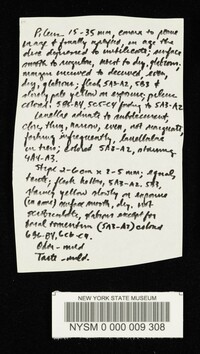 Pileus 15-35 mm, convex to plane
in age & finally uplifted, in age the
disc depressed to umbilicate, surface
smooth to rugulose, moist to dry, glabrous,
margin incurved to decurved, even,
dry, glabrous, flesh 5A2, 5B3 &
slowly pale yellow on exposure, pileus
colored 5B6-B4, 5C5-C4 fading to 5A3-A2
Lamellae adnate to subdecurrent,
close, thin, narrow, even, not marginate,
forking infrequently, lamellulae
in tiers, colored 5A3-A2,
4A4-A3.
Stipe 2-6 cm x 2-5 mm, equal,
flesh hollow, 5A3-A2, 5B3,
yellow slowly on exposure
(in one) surface smooth, dry, not
glabrous except for
basal tomentum (5A3-A2) colored
6B6-B4, 6C6-C4.
Odor - mild
Taste - mild.
NEW YORK STATE MUSEUM
NYSM 0 000 009 308